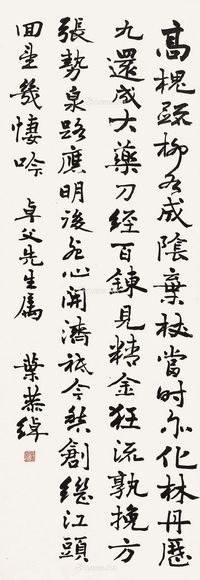 高槐疏柳各成陰棄杖當时亦化林丹歷
九還成大藥刀經百鍊見精金狂流孰挽方
張勢泉路應明後死心開濟祇今創繼江頭
回望幾悽吟 卓父先生属 葉恭綽